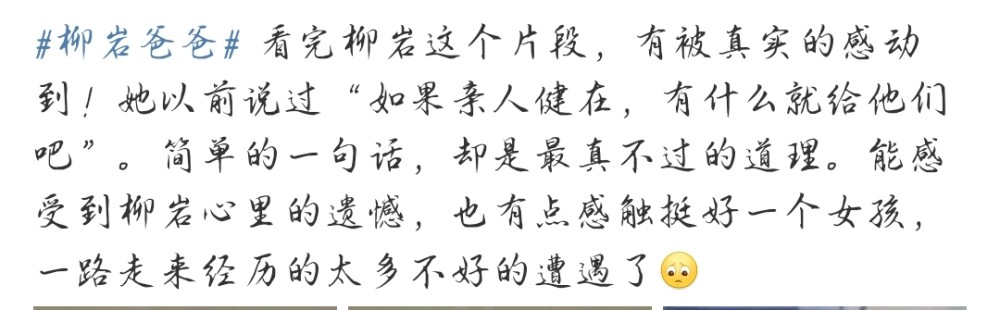 #柳岩爸爸# 看完柳岩这个片段，有被真实的感动
到！她以前说过“如果亲人健在，有什么就给他们
吧”。简单的一句话，却是最真不过的道理。能感
受到柳岩心里的遗憾，也有点感触挺好一个女孩，
一路走来经历的太多不好的遭遇了🥺